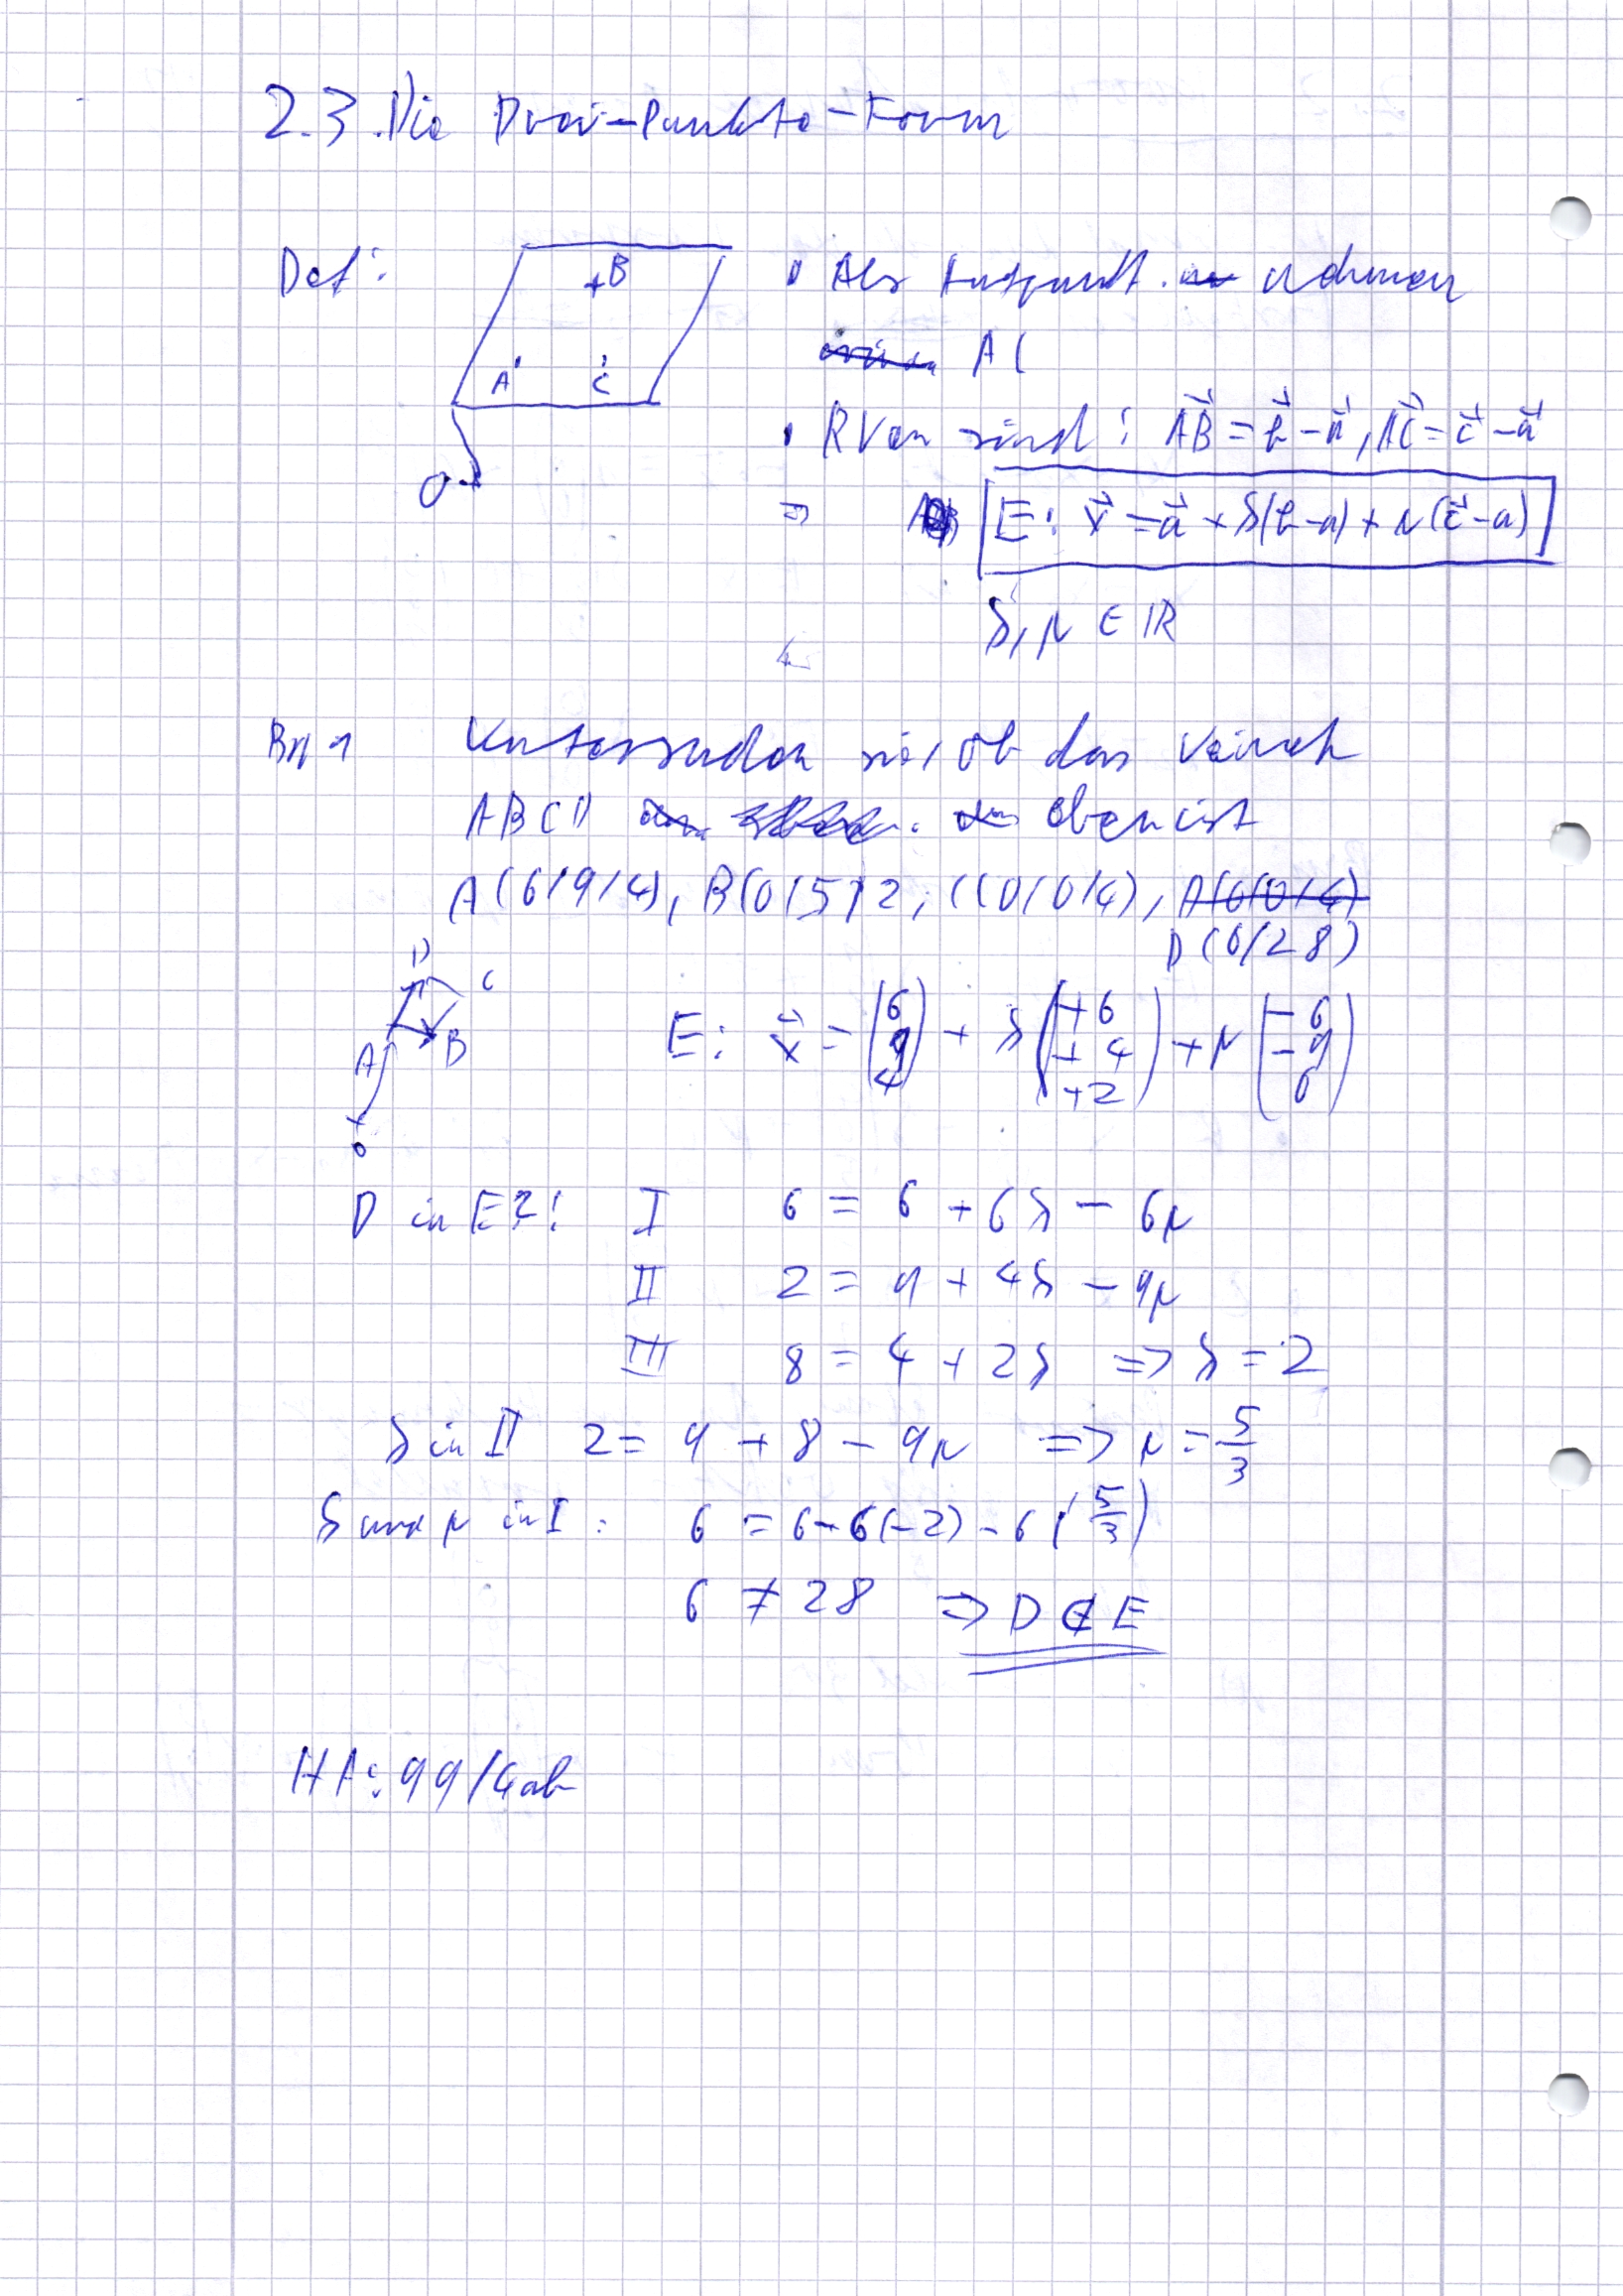 2.3. Die Drei-Punkte-Form
Def:
B
A
C
O
• Als Aufpunkt nehmen
A (
• RVen sind: AB⃗ = b⃗ - a⃗, AC⃗ = c⃗ - a⃗
⇒ E: x⃗ = a⃗ + λ(b-a) + μ(c⃗-a)
λ, μ ∈ ℝ
Bsp 1 Untersuchen sie, ob das Viereck
ABCD eben ist
A(6/9/4), B(0/5/2, C(0/0/4), A(6/0/4)
D(6/2 8)
D
C
A
B
0
E: x⃗ = (6 9 4) + λ(+6 +4 +2) + μ(-6 -9 0)
D in E?: I 6 = 6 + 6λ - 6μ
II 2 = 9 + 4λ - 9μ
III 8 = 4 + 2λ => λ = 2
λ in II 2 = 9 + 8 - 9μ => μ = 5/3
λ und μ in I: 6 = 6 - 6(-2) - 6(5/3)
6 ≠ 28 => D ∉ E
HA: 99/4ab